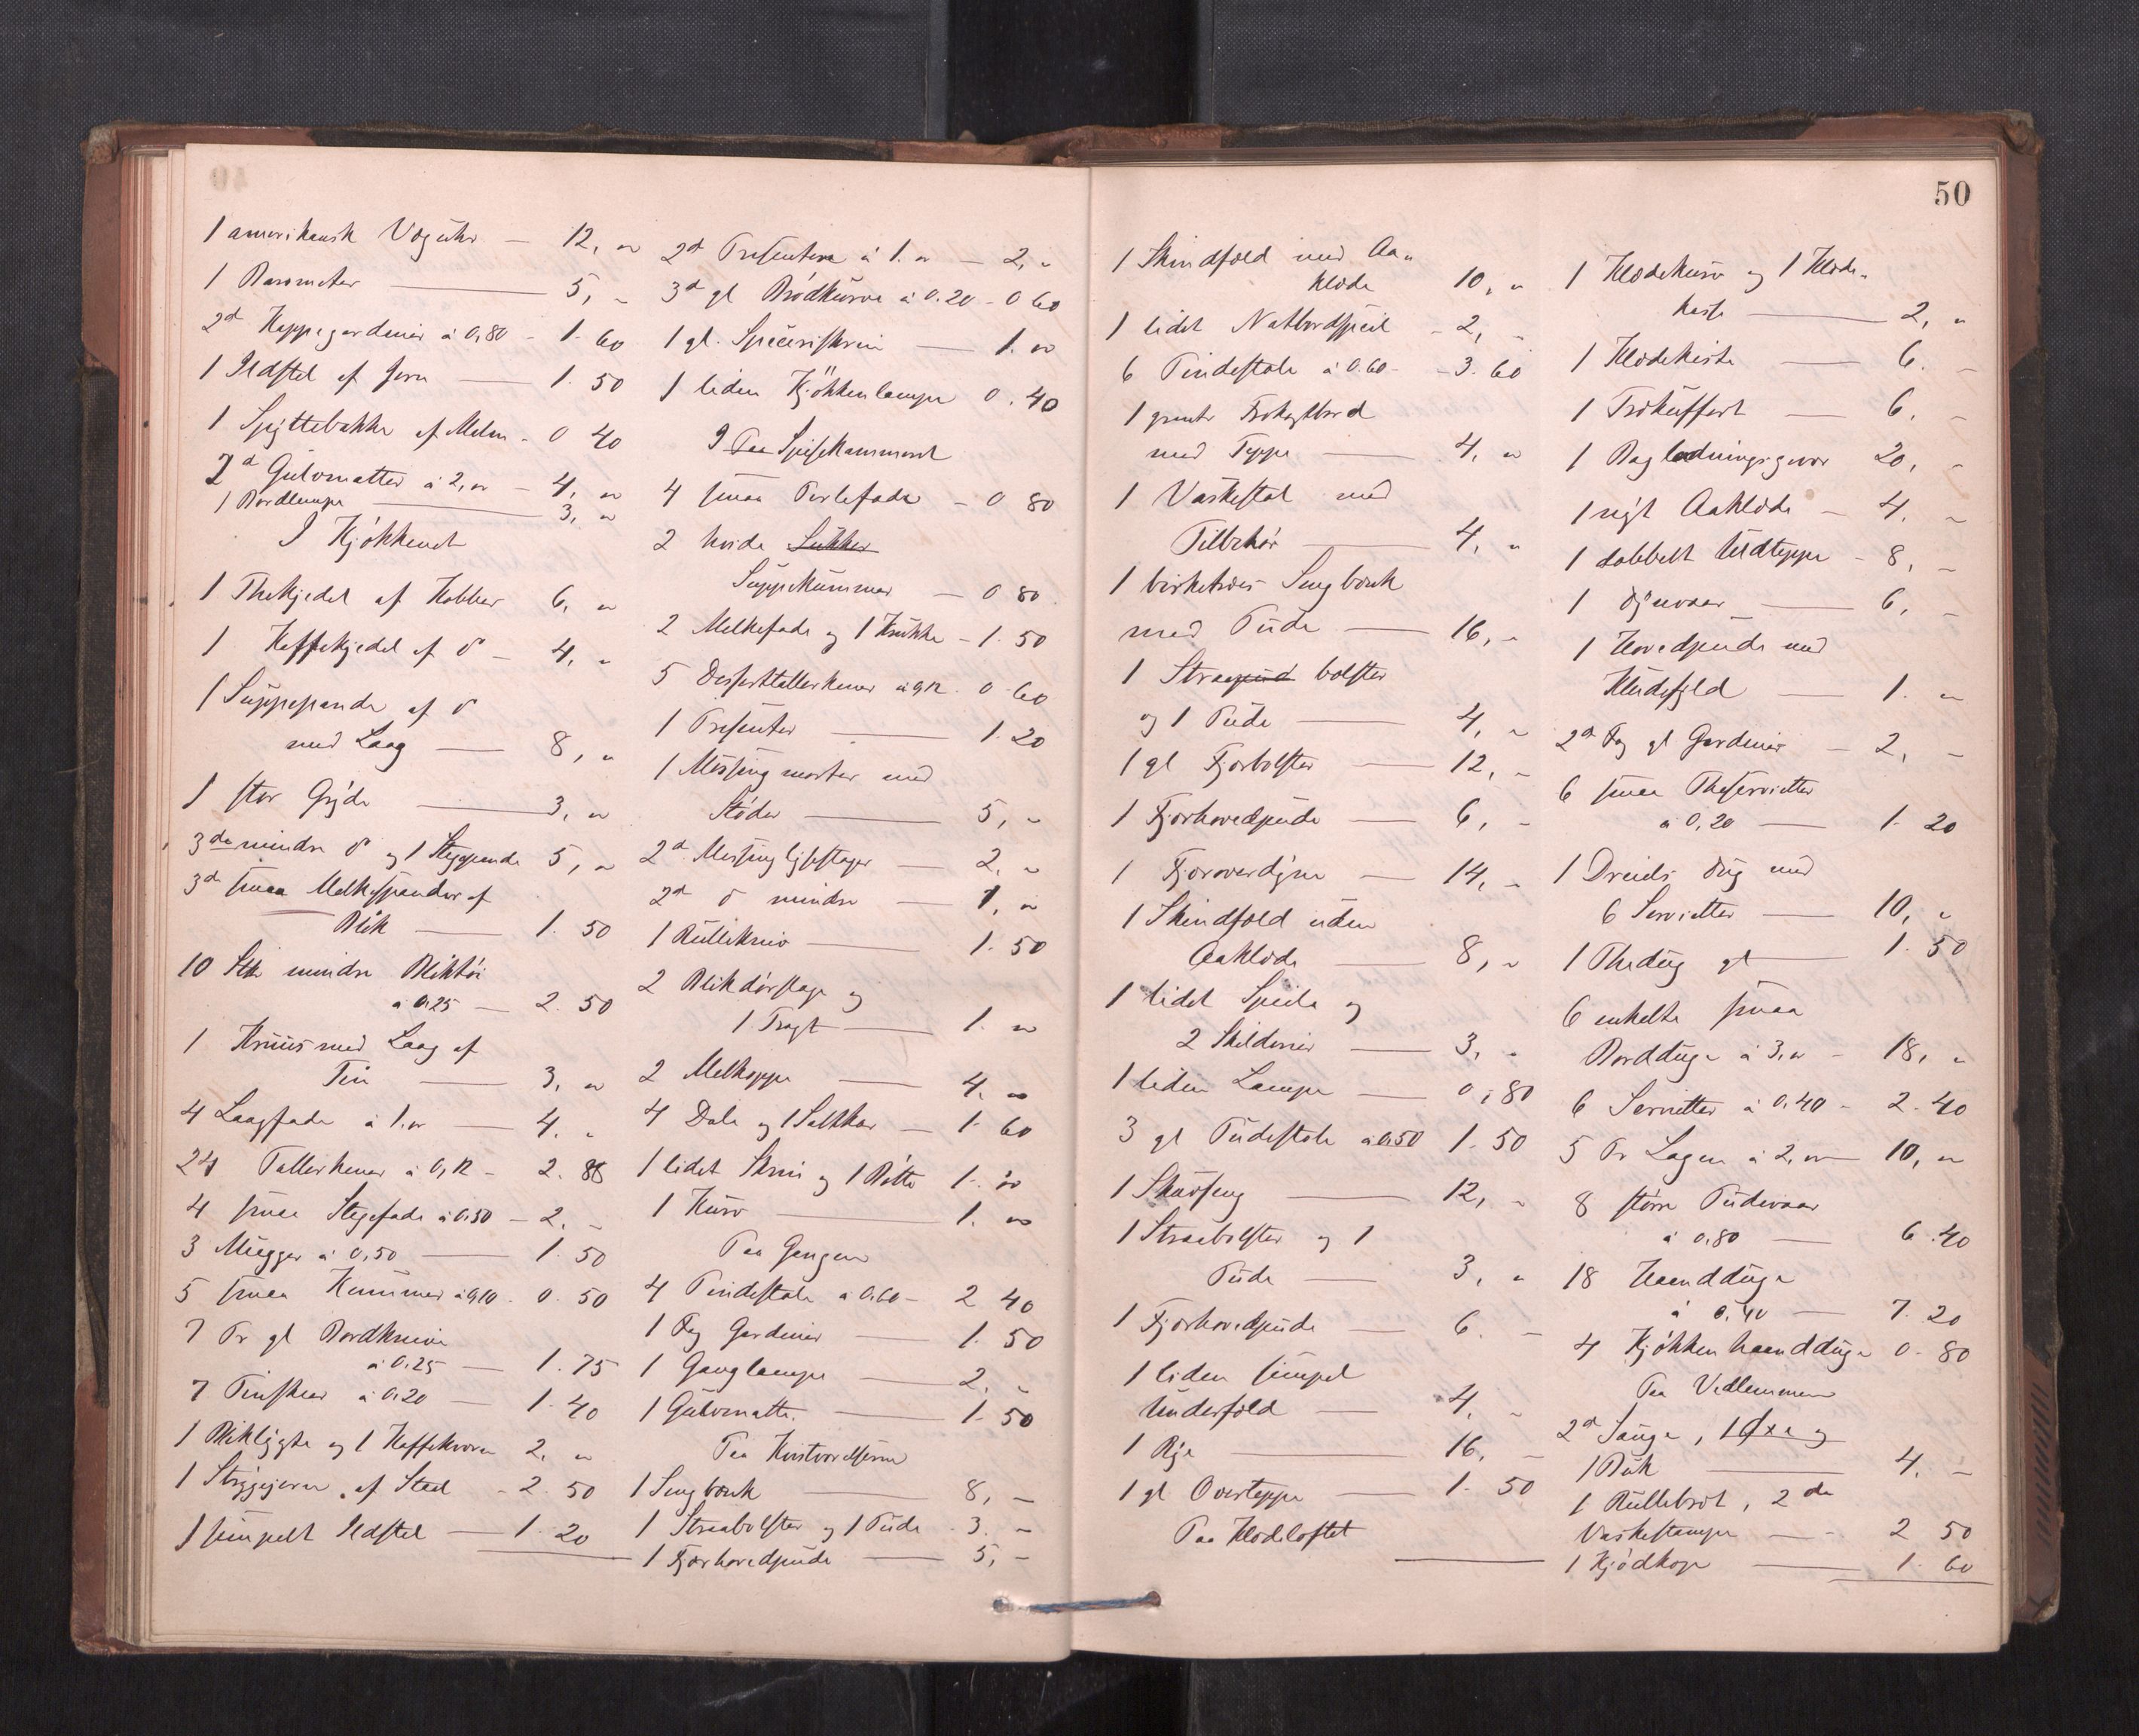 1 amerikansk Væguhr — 12, "
1 Barometer — 5, "
2d Kappegardiner à 0,80 - 1. 60
1 Ildstel af Jern — 1. 50
1 Spyttebakke af Malm - 0 40
2d Gulvmatter à 2, " — 4, "
1 Bordlampe — 3, "
I Kjøkkenet
1 Thekjedel af Kobber 6, "
1 Kaffekjedel af do — 4, "
1 Suppepande af do
med Laag — 8, "
1 stor Gryde — 3, "
3de mindre do og 1 Stegepande 5, "
3de smaa Melkespander af
Blik — 1. 50
10 Stk mindre Bliktøi
à 0.25 — 2. 50
1 Kruus med Laag af
Tin — 3, "
4 Laagfade à 1. " — 4. "
24 Tallerkener à 0,12 - 2. 88
4 smaa Stegefade à 0.50 - 2. "
3 Mugger à 0,50 — 1. 50
5 smaa Kummer à 0,10 - 0. 50
7 Pr gl Bordknive
à 0.25 — 1. 75
7 Tinskeer à 0.20 — 1. 40
1 Bliklygte og 1 Kaffekværn 2, "
1 Strygejern af Staal - 2. 50
1 simpelt Ildstel — 1. 20
2d Presentere à 1. " — 2, "
3d gl Brødkurve à 0.20 - 0 60
1 gl. Speceriskrin — 1. "
1 liden Kjøkkenlampe 0. 40
I Paa Spisekammeret
4 smaa Terlefade - 0 80
2 hvide Sukker
Suppekummer — 0 80
2 Melkefade og 1 Krukke - 1. 50
5 Desserttallerkener à 0,12 - 0 60
1 Presenter — 1. 20
1 Messingmorter med
Støder — 5, "
2d Messinglysestager — 2, "
2d do mindre — 1, "
1 Rullekniv — 1. 50
2 Blikdørslage og
1 Tragt — 1. "
2 Melkopper — 4. "
4 Dale og 1 Saltkar — 1. 60
1 lidet Skrin og 1 Bøtte 1. "
1 Kurv — 1. "
Paa Gangen
4 Pindestole à 0.60 - 2 40
1 Fag Gardiner — 1. 50
1 Ganglampe — 2. "
1 Gulvmatte. — 1. 50
Paa
1 Sengbænk — 8, —
1 Straabolster og 1 Pude - 3. "
1 Fjærhovedpude — 5, —
50
1 Skindfæld med Aa"
klæde 10, "
1 lidet Natbordspeil - 2, "
6 Pindestole à 0.60 - 3. 60
1 Frokostbord
med Teppe — 4, "
1 Vaskestol med
Tilbehør — 4, "
1 birketræs Sengbænk
med Pude — 16, "
1 Straapud bolster
og 1 Pude — 4, "
1 gl Fjærbolster — 12, "
1 Fjærhovedpude — 6, "
1 Fjæroverdyne — 14, "
1 Skindfæld uden
Aaklæde — 8, "
1 lidet Speile og
2 Skilderier — 3, "
1 liden Lampe — 0, 80
3 gl Pindestole à 0.50 1. 50
1 Skuvseng — 12, "
1 Straabolster og 1
Pude — 3, "
1 Fjærhovedpude — 6. —
1 liden simpel
Underfæld — 4, "
1 Rye — 16, —
1 gl Overteppe — 1. 50
Paa Klædeloftet
1 Klædekurv og 1 Klæde"
kasse — 2, "
1 Klædekiste — 6. "
1 Trækuffert — 6, "
1 Bagladningsgevær 20, "
1 nyt Aaklæde — 4, "
1 dobbelt Uldteppe - 8, "
1 Dynevaar — 6, "
1 Hovedpude med
— 1. "
2d Fag gl Gardiner — 2, "
6 smaa Theservietter
à 0,20 — 1. 20
1 Dreiels Dug med
6 Servietter — 10, "
1 Thedug gl — 1. 50
6 enkelte smaa
Borddüge à 3, " - 18, "
6 Servietter à 0.40 - 2. 40
5 Pr Lagen à 2, " — 10, "
8 større Pudevaar
à 0,80 — 6. 40
18 Haandduge
à 0,40 — 7. 20
4 Kjøkkenhaandduge 0. 80
Paa Vedlemmen
2d Sauge, 1 Øxe og
1 Bøk — 4. —
1 Rullebræt, 2de
Vaskestamper — 2 50
1 Kjødkop — 1. 60